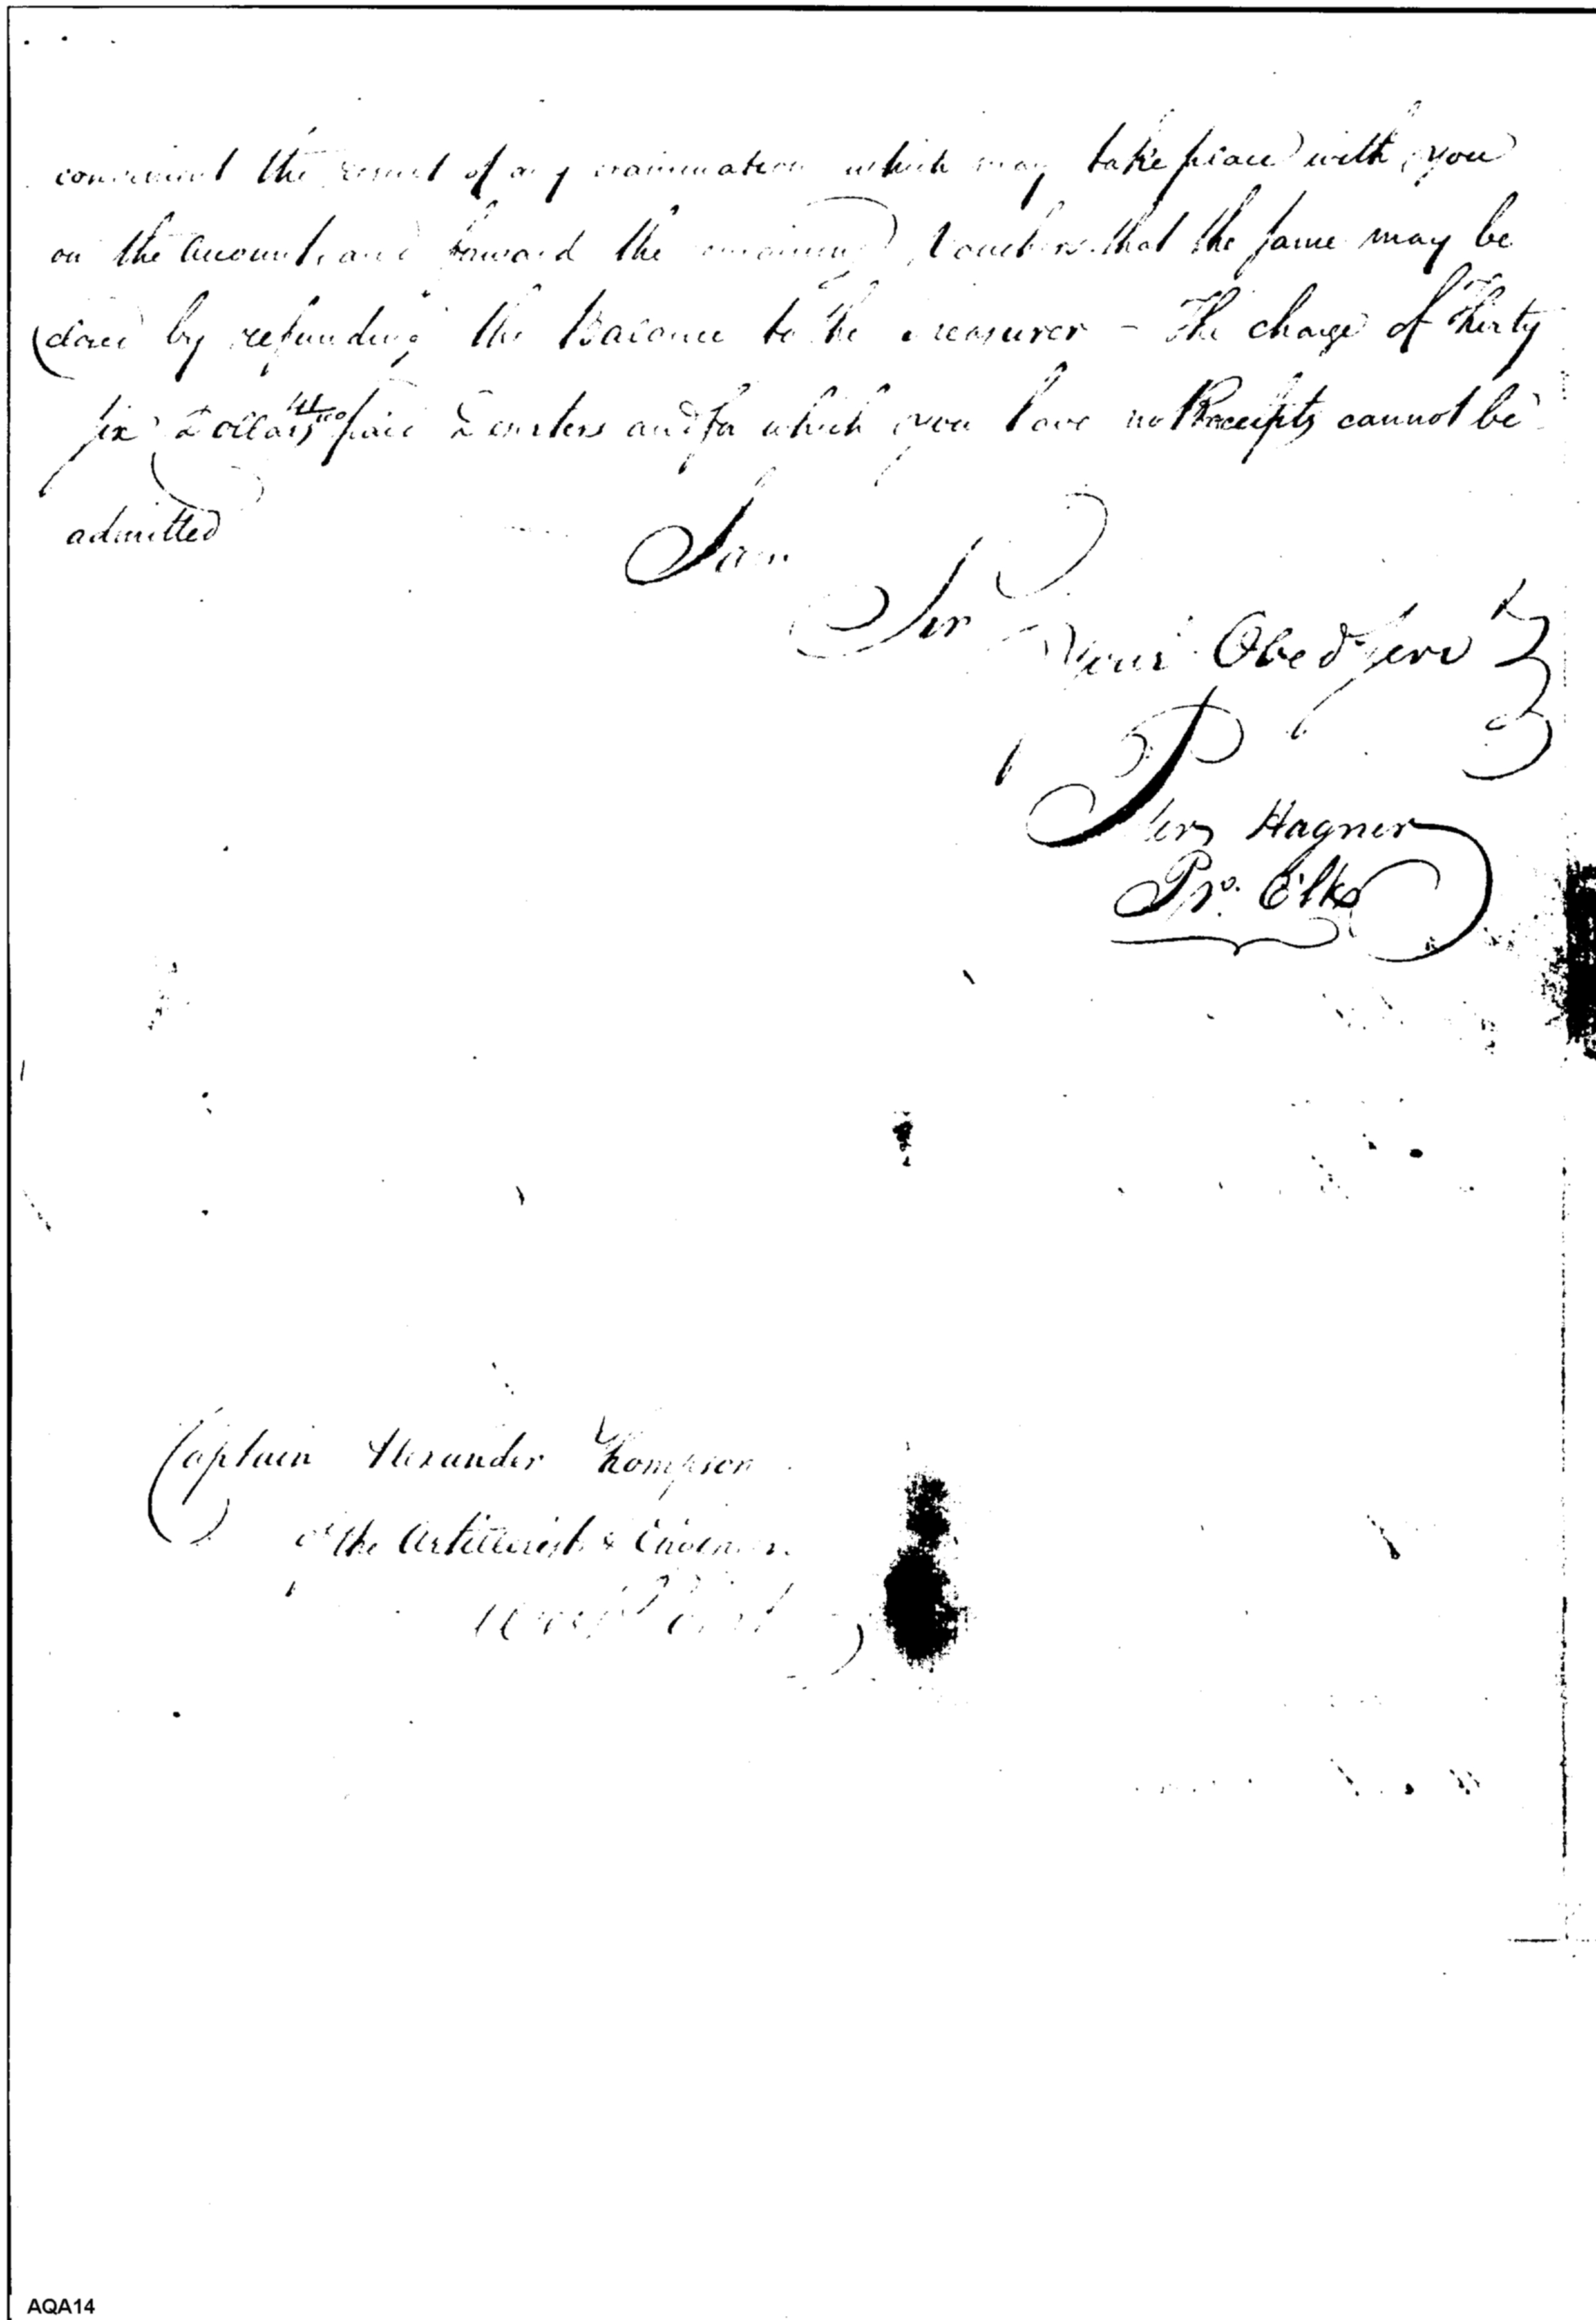 convenient the result of any examination which may take place with you
on the account, and forward the remaining Vouchers that the same may be
closed by refunding the Balance to the Treasurer - The charge of Thirty
six Dollars 41/100 paid and for which you have no Receipts cannot be
admitted
I am
Sir
Your Obed Serv
Peter Hagner
Pr. Clk
Captain Alexander Thompson
of the Artillerists & Engineers
West Point
AQA14